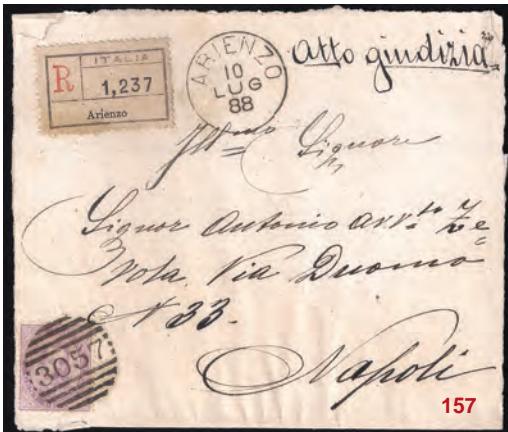 ITALIA
R 1,237
Arienzo
ARIENZO
10
LUG
88
Atto giudizia
Ill.mo Signore
Signor Antonio Avv.to
Via Duomo
N 33.
Napoli
3057
157